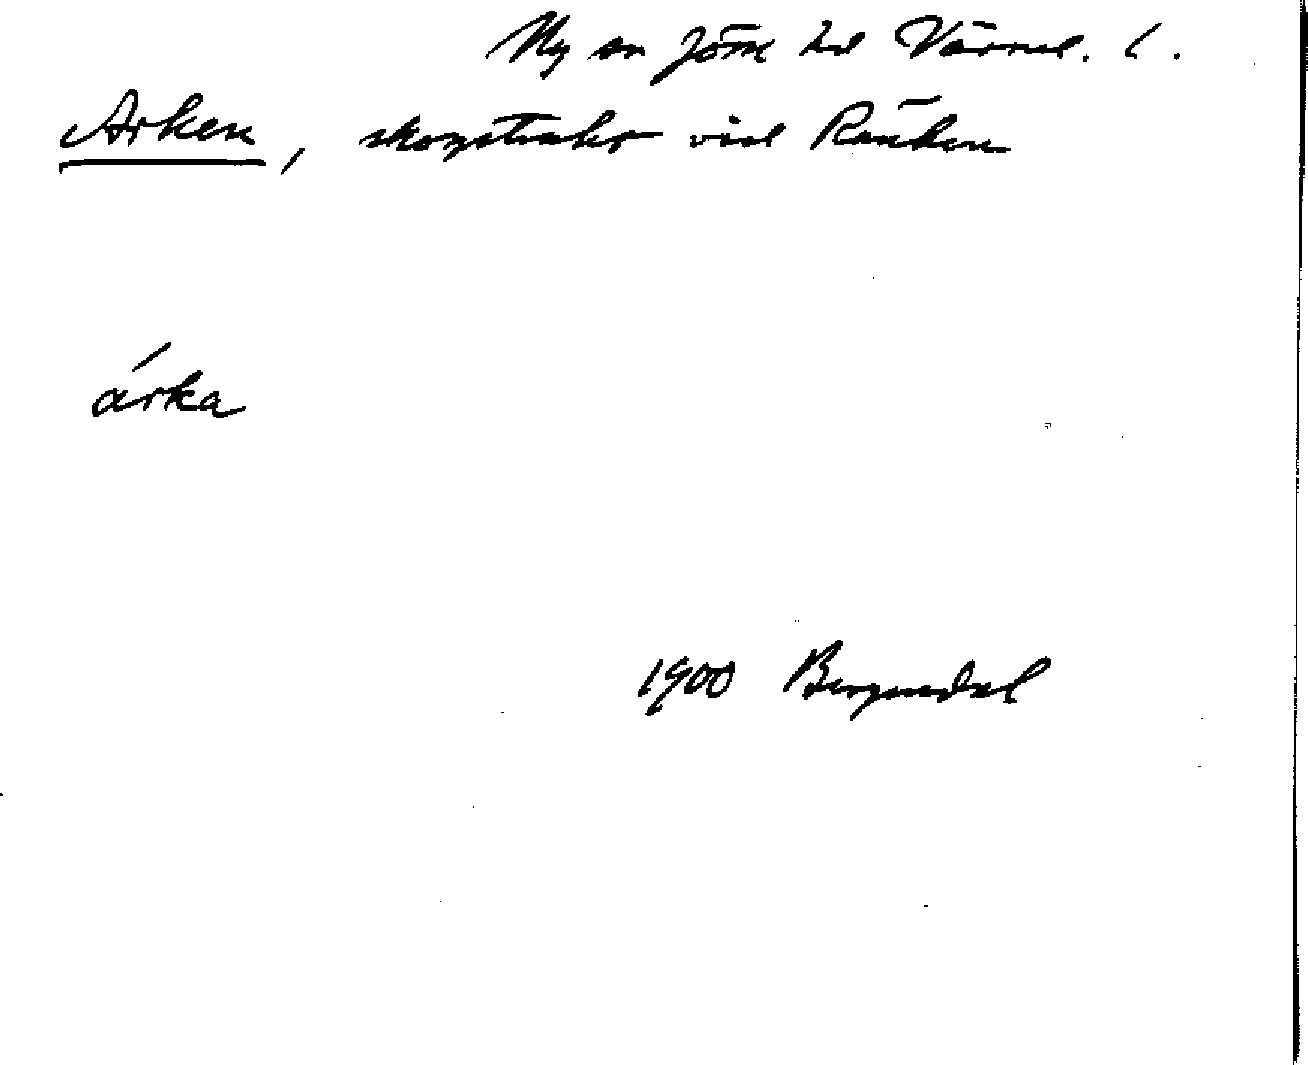 Ny sn Jösse hd Värml. l.
Arken, skogstrakt vid Ränken
árka
1900 Bergendal